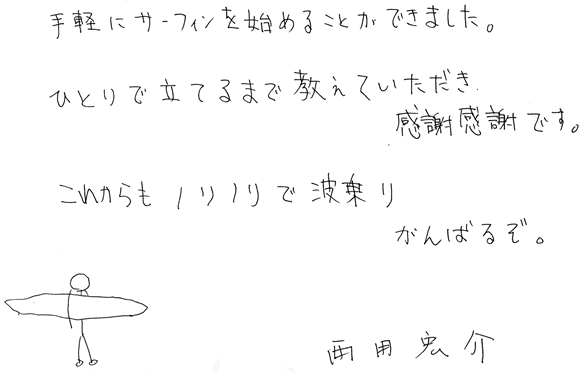 手軽にサーフィンを始めることができました。
ひとりで立てるまで教えていただき
感謝感謝です。
これからもノリノリで波乗り
がんばるぞ。
西田宏介